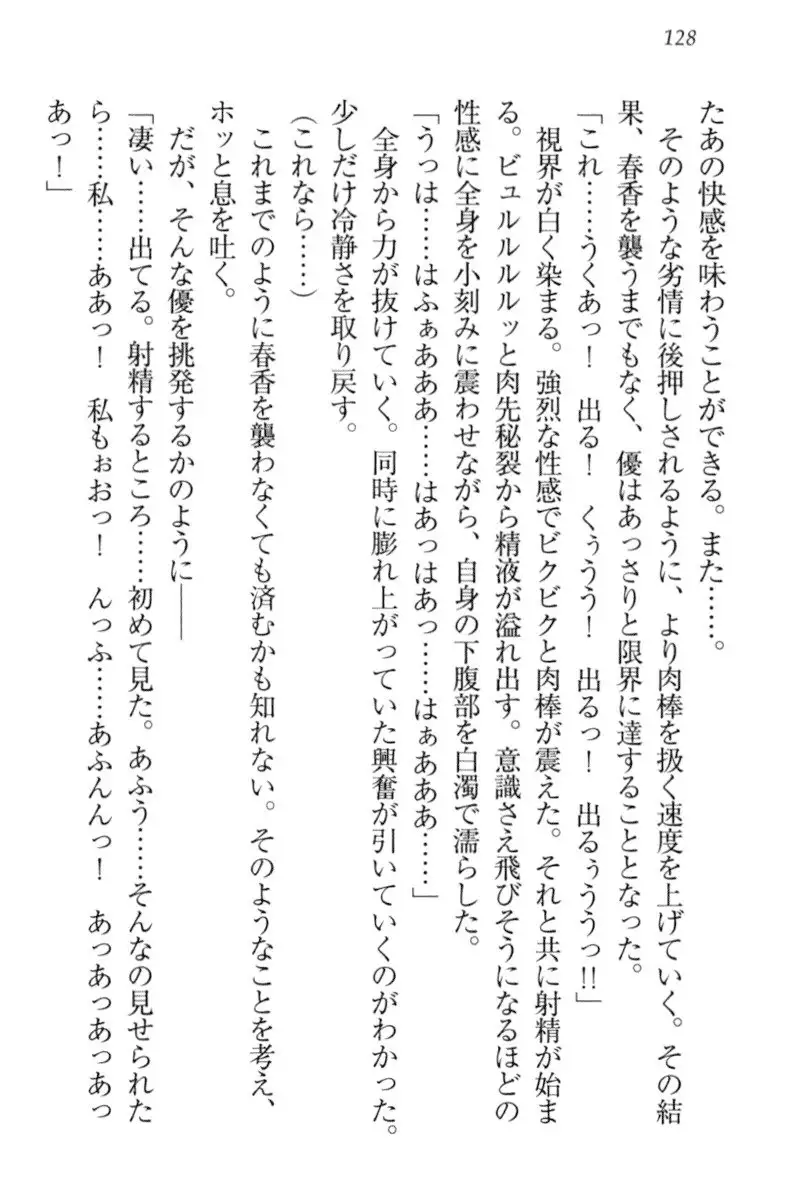 128
たあの快感を味わうことができる。また……。
　そのような劣情に後押しされるように、より肉棒を扱く速度を上げていく。その結
果、春香を襲うまでもなく、優はあっさりと限界に達することとなった。
「これ……うくあっ！　出る！　くぅうう！　出るっ！　出るぅううっ!!」
　視界が白く染まる。強烈な性感でビクビクと肉棒が震えた。それと共に射精が始ま
る。ビュルルルルッと肉先秘裂から精液が溢れ出す。意識さえ飛びそうになるほどの
性感に全身を小刻みに震わせながら、自身の下腹部を白濁で濡らした。
「うっは……はふぁあああ……はあっはあっ……はぁあああ……」
　全身から力が抜けていく。同時に膨れ上がっていた興奮が引いていくのがわかった。
少しだけ冷静さを取り戻す。
（これなら……）
　これまでのように春香を襲わなくても済むかも知れない。そのようなことを考え、
ホッと息を吐く。
　だが、そんな優を挑発するかのように――
「凄い……出てる。射精するところ……初めて見た。あふう……そんなの見せられた
ら……私……ああっ！　私もぉおっ！　んっふ……あふんんっ！　あっあっあっあっ
あっ！」